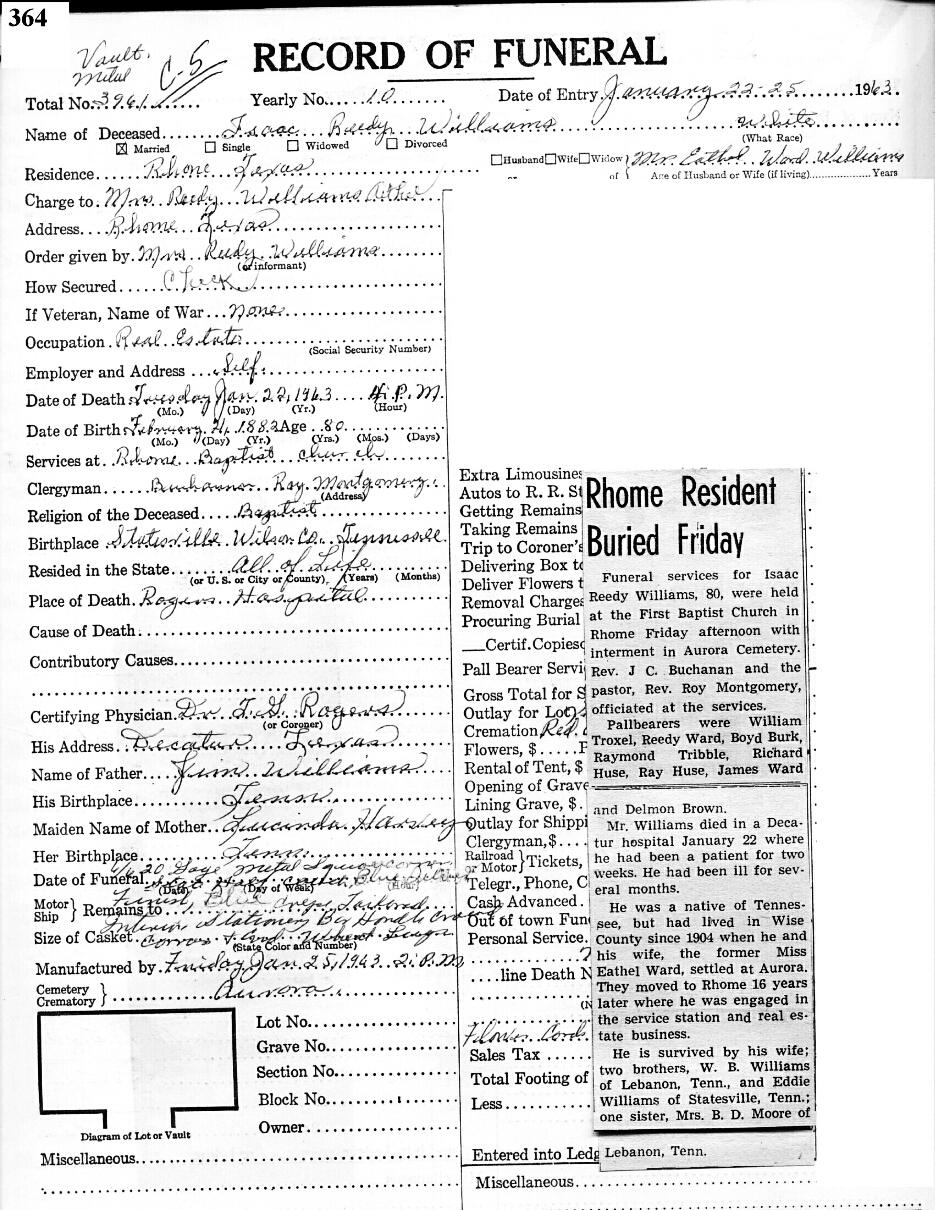 364
Vault.
Metal
C-5
RECORD OF FUNERAL
Total No. 3961 Yearly No. 10 Date of Entry January 22-25 1963
Name of Deceased Isaac Reedy Williams White
☒ Married ☐ Single ☐ Widowed ☐ Divorced (What Race)
Residence Rhome Texas ☐Husband ☐Wife ☐Widow of Mrs. Eathel Ward Williams
or Age of Husband or Wife (if living) Years
Charge to Mrs. Reedy Williams
Address Rhome Texas
Order given by Mrs Reedy Williams
(or informant)
How Secured Check
If Veteran, Name of War None
Occupation Real Estate
(Social Security Number)
Employer and Address Self
Date of Death Tuesday Jan. 22, 1963 4. P. M.
(Mo.) (Day) (Yr.) (Hour)
Date of Birth February 1882 Age 80
(Mo.) (Day) (Yr.) (Yrs.) (Mos.) (Days)
Services at Rhome Baptist church
Clergyman Buchannon Ray Montgomery
(Address)
Religion of the Deceased Baptist
Birthplace Statesville Wilson Co. Tennessee
Resided in the State All of Life
(or U. S. or City or County), (Years) (Months)
Place of Death Rogers Hospital
Cause of Death
Contributory Causes
Certifying Physician Dr Rogers
(or Coroner)
His Address Decatur Texas
Name of Father Jim Williams
His Birthplace Tenn
Maiden Name of Mother Lucinda
Her Birthplace Tenn
20 Gage Metal
Date of Funeral Blue
(Date) (Day of Week) (Hour)
Finish, Blue Tailored
Motor
Ship } Remains to
Interior Stationery
Size of Casket
(State Color and Number)
Manufactured by Friday Jan 25, 1963 2. P. M
Cemetery
Crematory } Aurora
Lot No.
Grave No.
Section No.
Block No.
Owner
Diagram of Lot or Vault
Miscellaneous
Extra Limousines
Autos to R. R. St
Getting Remains
Taking Remains
Trip to Coroner's
Delivering Box to
Deliver Flowers t
Removal Charges
Procuring Burial
Certif. Copies
Pall Bearer Servi
Gross Total for S
Outlay for Lot
Cremation
Flowers, $ F
Rental of Tent, $
Opening of Grave
Lining Grave, $
Outlay for Shippi
Clergyman, $
Railroad
or Motor } Tickets,
Telegr., Phone, C
Cash Advanced
Out of town Fun
Personal Service
line Death N
Flower Cards
Sales Tax
Total Footing of
Less
Entered into Ledg
Miscellaneous
Rhome Resident
Buried Friday
Funeral services for Isaac
Reedy Williams, 80, were held
at the First Baptist Church in
Rhome Friday afternoon with
interment in Aurora Cemetery.
Rev. J C. Buchanan and the
pastor, Rev. Roy Montgomery,
officiated at the services.
Pallbearers were William
Troxel, Reedy Ward, Boyd Burk,
Raymond Tribble, Richard
Huse, Ray Huse, James Ward
and Delmon Brown.
Mr. Williams died in a Deca-
tur hospital January 22 where
he had been a patient for two
weeks. He had been ill for sev-
eral months.
He was a native of Tennes-
see, but had lived in Wise
County since 1904 when he and
his wife, the former Miss
Eathel Ward, settled at Aurora.
They moved to Rhome 16 years
later where he was engaged in
the service station and real es-
tate business.
He is survived by his wife;
two brothers, W. B. Williams
of Lebanon, Tenn., and Eddie
Williams of Statesville, Tenn.;
one sister, Mrs. B. D. Moore of
Lebanon, Tenn.